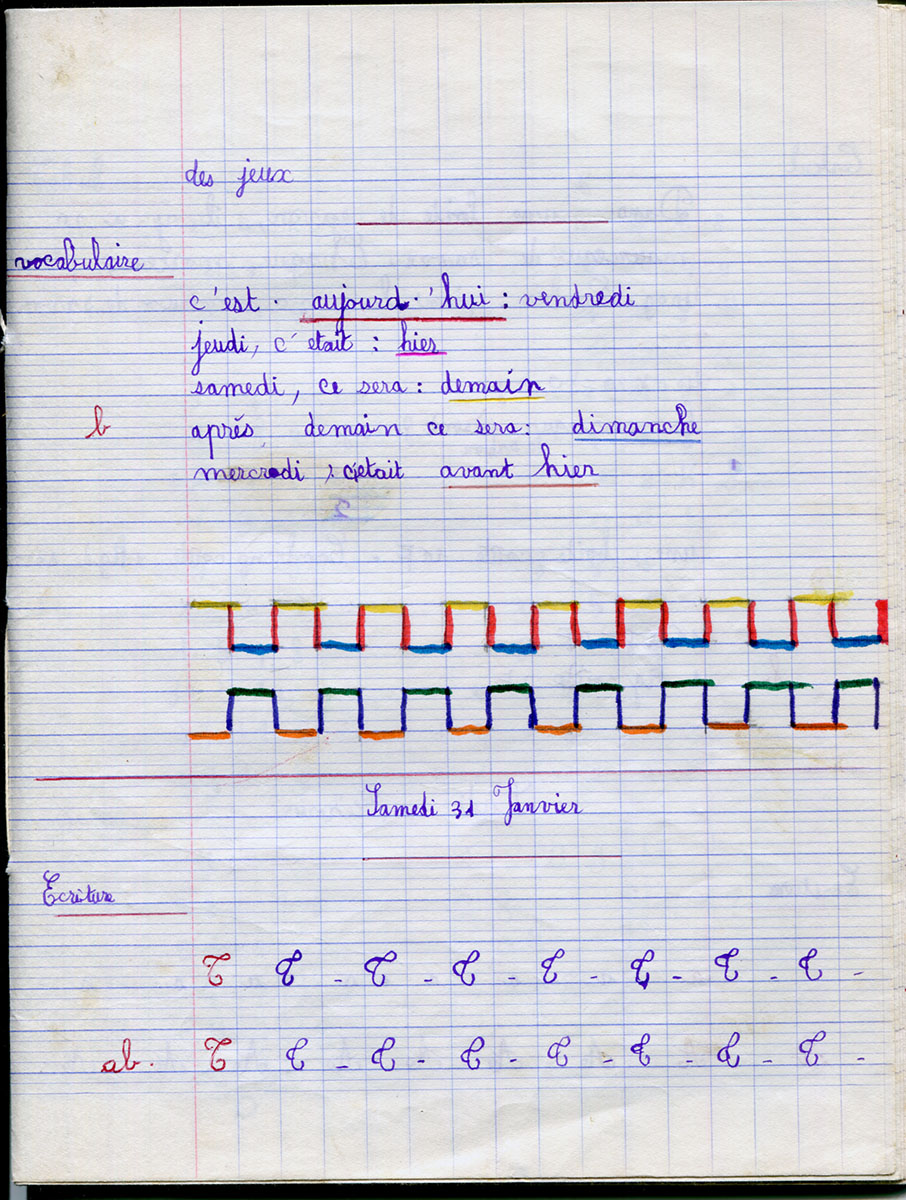 des jeux
vocabulaire
c'est . aujourd.'hui : vendredi
jeudi, c'etait : hier
samedi, ce sera : demain
b après demain ce sera : dimanche
mercredi , c'etait avant hier
Samedi 31 Janvier
Ecriture
T T - T - T - T - T - T - T -
ab. T T - T - T - T - T - T - T -